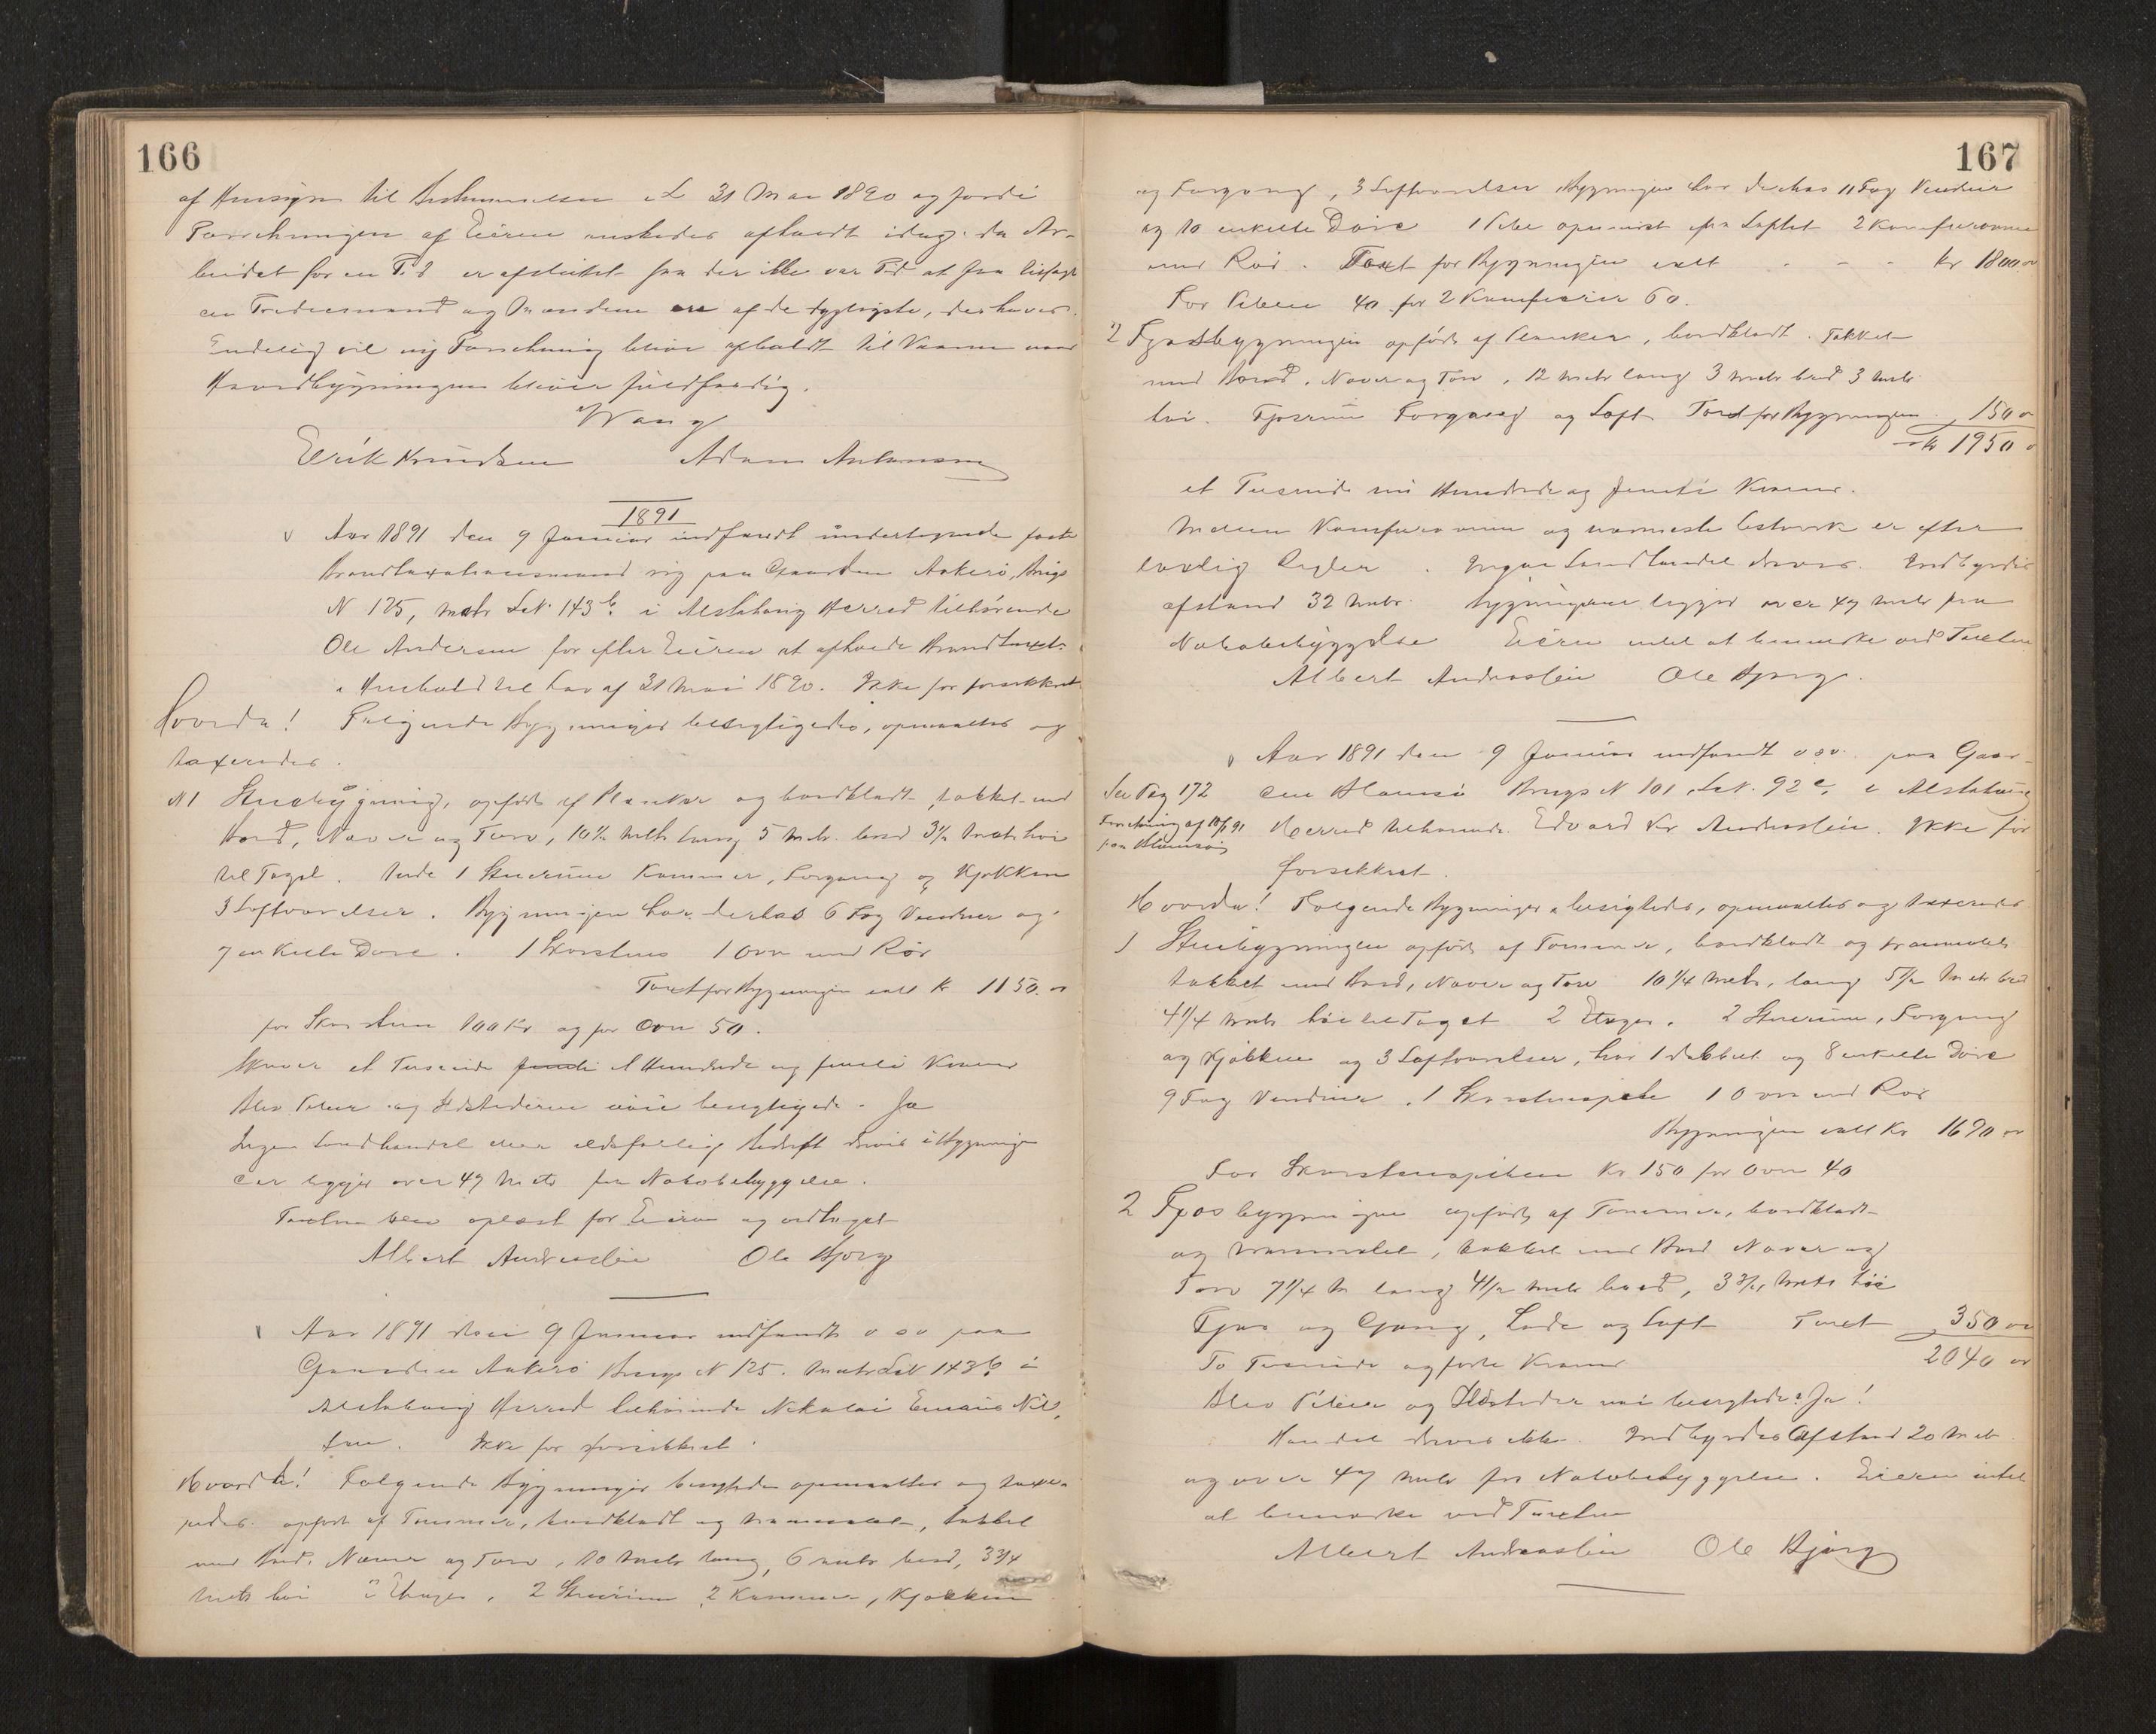 166
af Hensyn til Bestemmelsen i L 31 Mai 1890 og fordi
Forretningen af Eieren ønskedes afholdt idag. da Ar-
beidet for en Tid er afsluttet saa der ikke var Tid at faa tilsagt
en Trediemand og Mændene ere af de dygtigste, des
Endelig vil ny Forretning blive afholdt til Vaaren naar
Hovedbygningen bliver fuldfærdig.
Wang
Erik Knudsen Adam Antonsen
1891
Aar 1891 den 9 Januar indfandt undertegnede faste
Brandtaxationsmænd sig paa Gaarden Aakerø, Brugs
N 125, Matr Lit. 143 b. i Alstahoug Herred tilhørende
Ole Andersen for efter Eieren at afholde Brandtaxt.
i Henhold til Lov af 31 Mai 1890. Ikke før forsikkret
Hvorda! Følgende Bygninger besigtigedes, opmaaltes og
taxeredes.
N1 Stuebygning, opført af Planker og bordklædt takket med
Bord, Næver og Torv, 10½ Metr lang 5 Metr. bred 3½ Metr høi
til Taget. Inde 1 Stuerum Kammer, Forgang og Kjøkken
3 Loftværelser. Bygningen har desuden 6 Fag Vinduer og
7 enkelte Døre. 1 Skorsten 1 Ovn med Rør
Taxt for Bygningen ialt Kr 1150.00
for Skorsten 100 Kr og for Ovn 50.
Skriver et Tusinde et Hundrede og femti Kroner
Blev Piber og Ildstederne nøie besigtigede. Ja
Ingen Landhandel eller ildsfarlig Bedrift drives i Bygningen
der ligger over 47 Metr fra Nabobebyggelse.
Taxten blev oplæst for Eieren og vedtaget
Albert Andreassen Ole Bjørg
Aar 1891 den 9 Januar indfandt o s v paa
Gaarden Aakerø Brugs N 125. Matr Lit 143 b i
Alstahoug Herred tilhørende Nikolai Nil-
sen. Ikke før forsikkret.
Hvorda! Følgende Bygninger besigtedes opmaaltes og taxe-
redes. opført af Tømmer, bordklædt og , takket
med Bord, Næver og Torv, 10 Metr lang, 6 metr bred, 3¾
Metr høi 2 Etager, 2 Stuerum 2 Kammer, Kjøkken
167
og Forgang, 3 Loftværelser Bygningen har 11 Fag Vinduer
og 10 enkelte Døre 1 Pibe opmuret fra Loftet 2 Komfurovne
med Rør. Taxt for Bygningen ialt - - - kr 1800.00
For Piben 40 for 2 Komfurer 60.
2 Fjøsbygningen opført af Planker, bordklædt. Takket
med Bord, Næver og Torv, 12 metr lang 3 metr bred 3 metr
høi. Fjøsrum Forgang og Loft Taxt for Bygningen 150 00
Kr 1950 0
et Tusinde ni Hundrede og femti Kroner.
Mellem Komfurovnen og nærmeste træverk er efter
lovlig Regler. Ingen Landhandel drives. Indbyrdes
afstand 32 Metr. Bygningerne ligger over 47 Metr fra
Nabobebyggelse Eieren intet at bemærke ved Taxten
Albert Andreassen Ole Bjørg.
Aar 1891 den 9 Januar indfandt o s v. paa Gaar-
Se Pag 172
den Blomsø Brugs N 101, Lit. 92 c, i Alstahoug
Forretning af 10/9 91
paa Blomsø
Herred tilhørende Edvard Kr Andreassen. Ikke før
forsikkret.
Hvorda! Følgende Bygninger besigtedes, opmaaltes og taxeredes
1 Stuebygningen opført af Tømmer, bordklædt og
takket med Bord, Næver og Torv 10¼ Metr, lang 5½ Metr bred
4¼ Metr høi til Taget 2 Etager. 2 Stuerum, Forgang
og Kjøkken og 3 Loftværelser, har 1 dobbelt og 8 enkelte Døre
9 Fag Vinduer. 1 Skorstenspibe 1 Ovn med Rør
Bygningen ialt Kr 1690 00
For Skorstenspiben Kr 150 for Ovn 40
2 Fjøsbygningen opført af Tømmer, bordklædt
og , takket med Bord Næver og
Torv 7¼ M lang 4½ Metr bred, 3¾ Metr høi
Fjøs og Gang, Lade og Loft Taxt 350 00
To Tusinde og førti Kroner 2040 00
Blev Piber og Ildsteder nøi besigtede? Ja!
Handel drives ikke. Indbyrdes Afstand 20 Metr
og over 47 Metr fra Nabobebyggelse. Eieren intet
at bemærke ved Taxten
Albert Andreassen Ole Bjørg